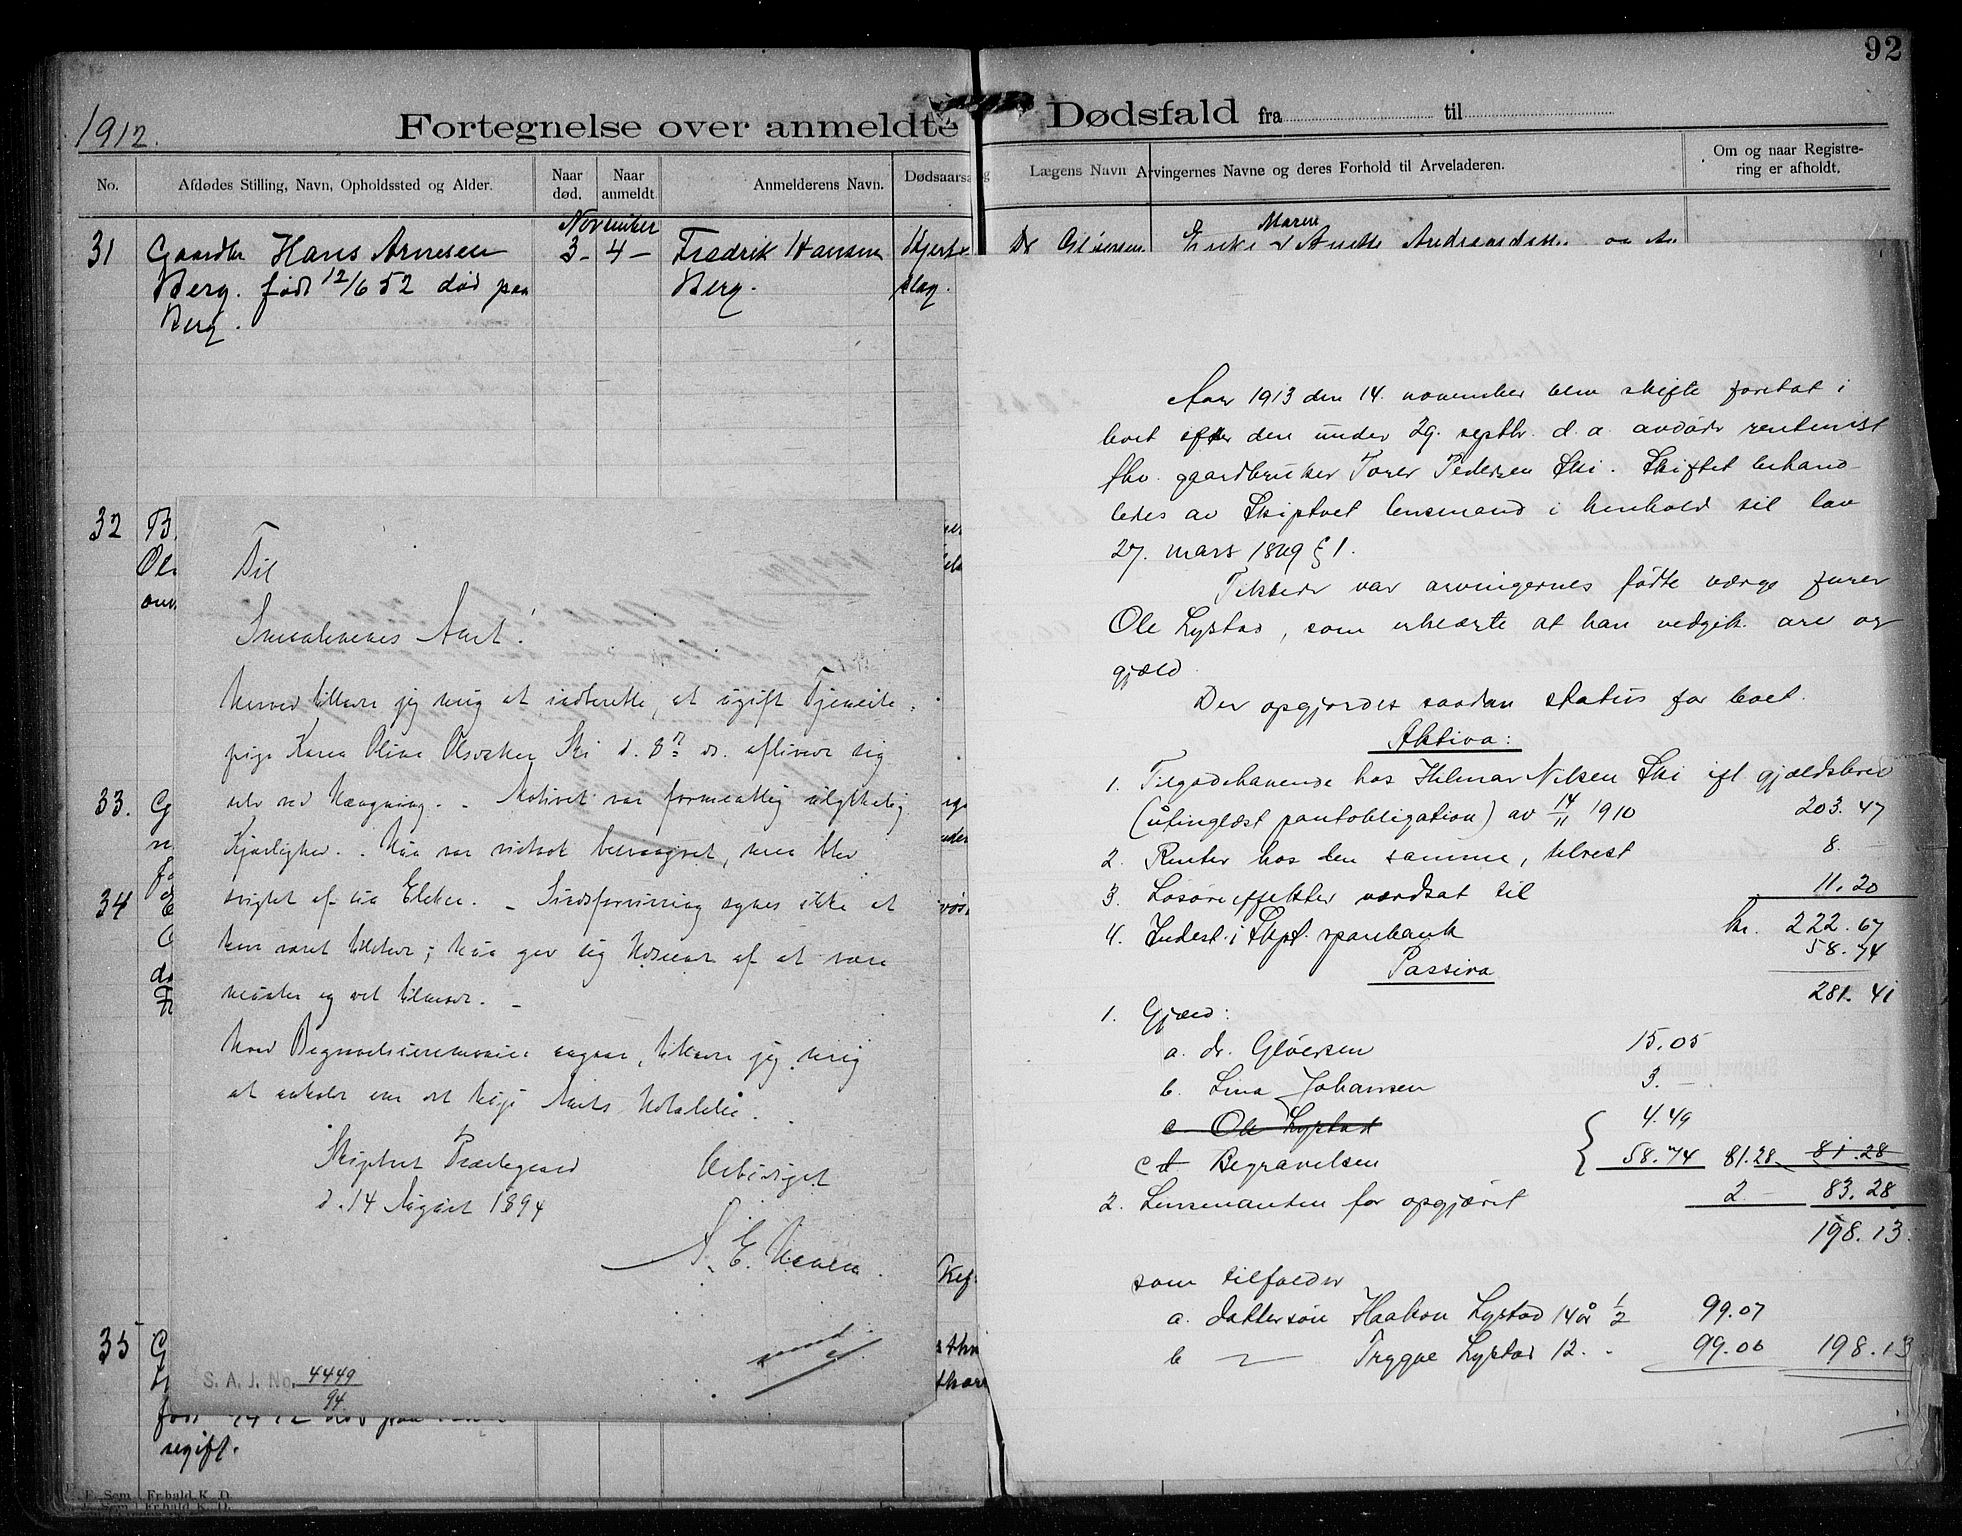 92
1912.
Fortegnelse over anmeldte Dødsfald fra til
No.
Afdødes Stilling, Navn, Opholdssted og Alder.
Naar død.
Naar anmeldt
Anmelderens Navn.
Dødsaarsag
Lægens Navn
Arvingernes Navne og deres Forhold til Arveladeren.
Om og naar Registrering er afholdt.
November
31 Gaardbr Hans Arnesen 3- 4- Fredrik Hansen Hjerte
Berg. født 12/6 52 død paa Berg. slag.
Berg.
Maren
Dr Gløersen
32
33.
34
35
født
ugift.
F. Sem, Fr.hald K. D.
F. Sem, Fr.hald K. D.
Til
Amt.
Herved tillader jeg mig at indberette, at ugift Tjeneste-
pige Karen Oline Olsdatter Ski d. 8de ds. aflivede sig
selv ved Hængning. - Motivet var formentlig ulykkelig
Kjærlighed. - Hun var vistnok besvangret, men blev
sveget af sin Elsker. - Sindsforvirring synes ikke at
have været tilstede; hun gav sig Udseende af at være
munter og vel tilmode. -
Hvad Begravelsesceremonien angaar, tillader jeg mig
at anholde om det høie Amts Udtalelse.
Skiptvet Præstegaard Ærbødigst
d. 14 August 1894
S. A. J. No. 4449
94
Aar 1913 den 14. november blev skifte foretat i
boet efter den under 29. septbr. d. a. avdøde rentenist
fhv. gaardbruker Torer Pedersen Ski. Skiftet behand-
ledes av Skiptvet lensmand i henhold til lov
27. mars 1869 § 1.
Tilstede var arvingernes fødte værge furer
Ole Lystad, som erklærte at han vedgik arv og
gjæld.
Der opgjordes saadan status for boet:
Aktiva:
1. Tilgodehavende hos Hilmar Nilsen Ski ifl gjældsbrev
(utinglæst pantobligation) av 14/11 1910 203.47
2. Renter hos den samme, tilrest 8. -
3. Løsøreeffekter værdsat til 11.20
kr. 222.67
4. Indest. i Skpt. sparebank 58.74
Passiva
281.41
1. Gjæld:
a. dr. Gløersen 15.05
b. Lina Johansen 3. -
c Ole Lystad 4.49
c d Begravelsen 58.74 81.28 81.28
2. Lensmanden for opgjøret 2 - 83.28
198.13.
som tilfalder
a. dattersøn Haakon Lystad 14 år 1/2 99.07
b - Trygve Lystad 12. - 99.06 198.13